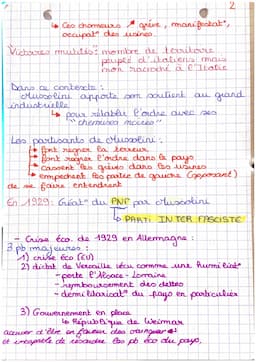 2
↳ Ces chomeurs ↗ grève, manifestat°,
occupat° des usines
Victoires mutilés : membre de territoire
peuplé d'italiens mais
non racroché à l'Italie
Dans ce contexte :
Mussolini apporte son soutient au grand
industrielle
↳ pour rétablir l'ordre avec ses
"chemises noires"
Les partisants de Mussolini :
↳ font regner la terreur
↳ font regner l'ordre dans le pays
↳ cassent les grèves dans les usines
↳ empechent les partis de gauche (opposant)
de se faire entendrent
En 1929 : Créat° du PNF par Mussolini
↳ PARTI INTER FASCISTE
- Crise éco. de 1929 en Allemagne :
3 pb majeures :
1) crise éco (EU)
2) diktat de Versaille vécu comme une humiliat°
- perte l'Alsace-Lorraine
- remboursement des dettes
- demilitaricat° du pays en particuliés
3) Gouvernement en place
↳ République de Weimar
accuser d'être en faveur des
et incapable de résoudre les pb éco du pays,